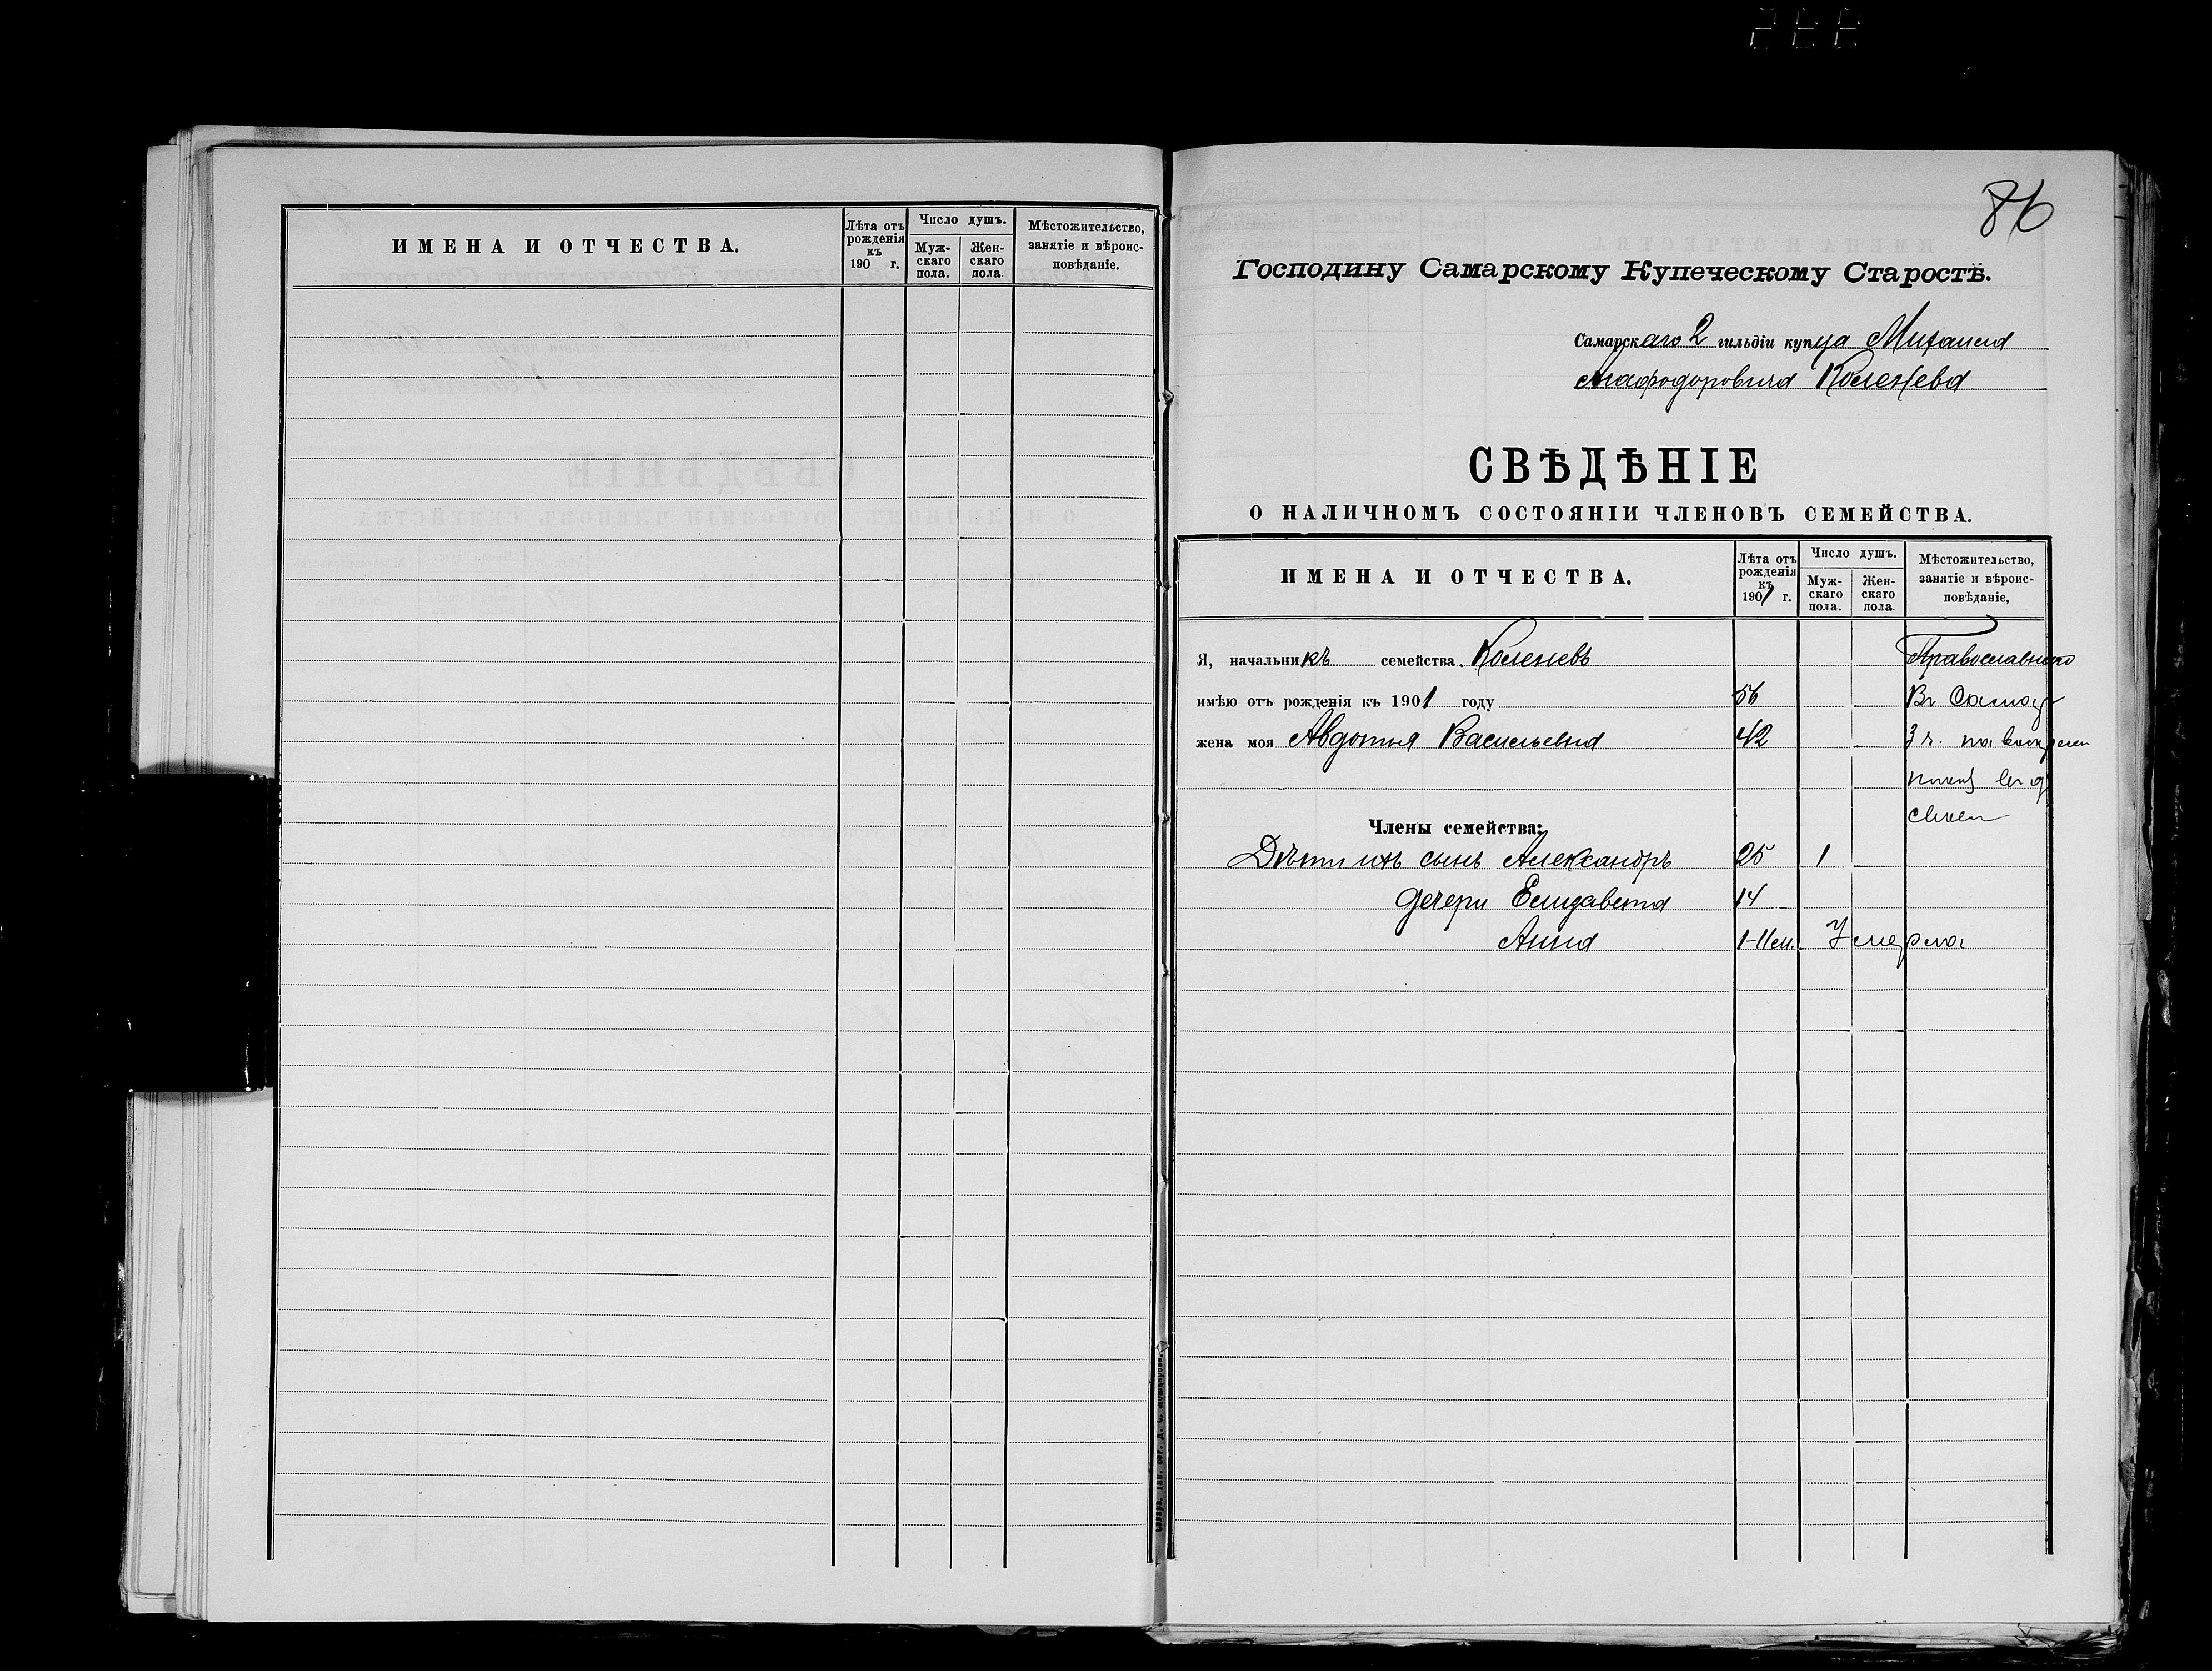 ИМЕНА И ОТЧЕСТВА.
Лѣта отъ рожденія къ 190 г.
Число душъ.
Муж-скаго пола.
Жен-скаго пола.
Мѣстожительство, занятіе и вѣроис-повѣданіе.
86
Господину Самарскому Купеческому Старостѣ.
Самарскаго 2 гильдіи купца Михаила
Агафодоровича
СВѢДѢНІЕ
О НАЛИЧНОМЪ СОСТОЯНІИ ЧЛЕНОВЪ СЕМЕЙСТВА.
ИМЕНА И ОТЧЕСТВА.
Лѣта отъ рожденія къ 1901 г.
Число душъ.
Муж-скаго пола.
Жен-скаго пола.
Мѣстожительство, занятіе и вѣроис-повѣданіе,
Я, начальникъ семейства Православнаго
имѣю отъ рожденія къ 1901 году 56 Въ
жена моя Авдотья Васильевна 42
Члены семейства:
Дѣти ихъ сынъ Александръ 25 1
дочери Елизавета 14
Анна 1-11 м. Умерла